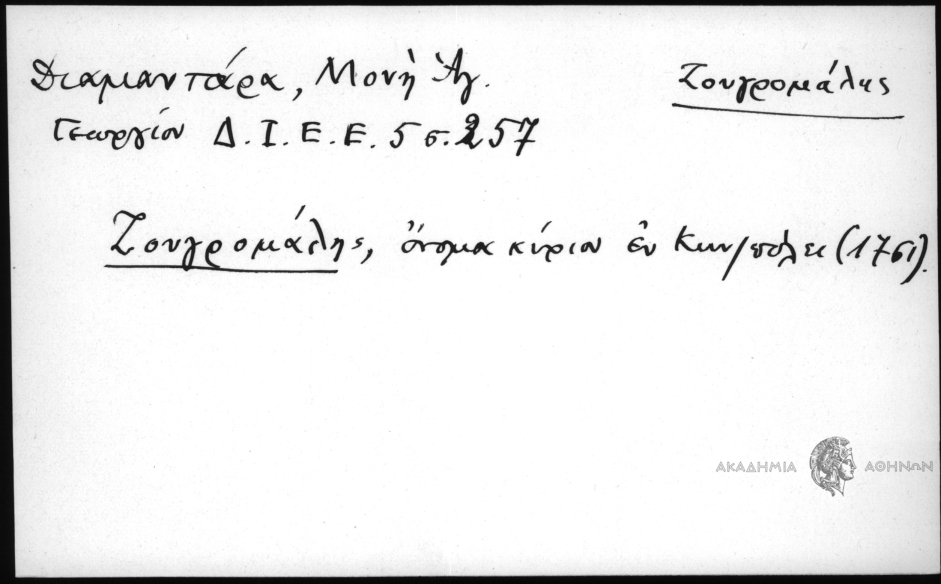 Διαμαντάρα, Μονὴ Ἁγ.
Γεωργίου Δ.Ι.Ε.Ε. 5 σ. 257
Ζουγρομάλης
Ζουγρομάλης, ὄνομα κύριον ἐν Κων/πόλει (1761).
ΑΚΑΔΗΜΙΑ ΑΘΗΝΩΝ